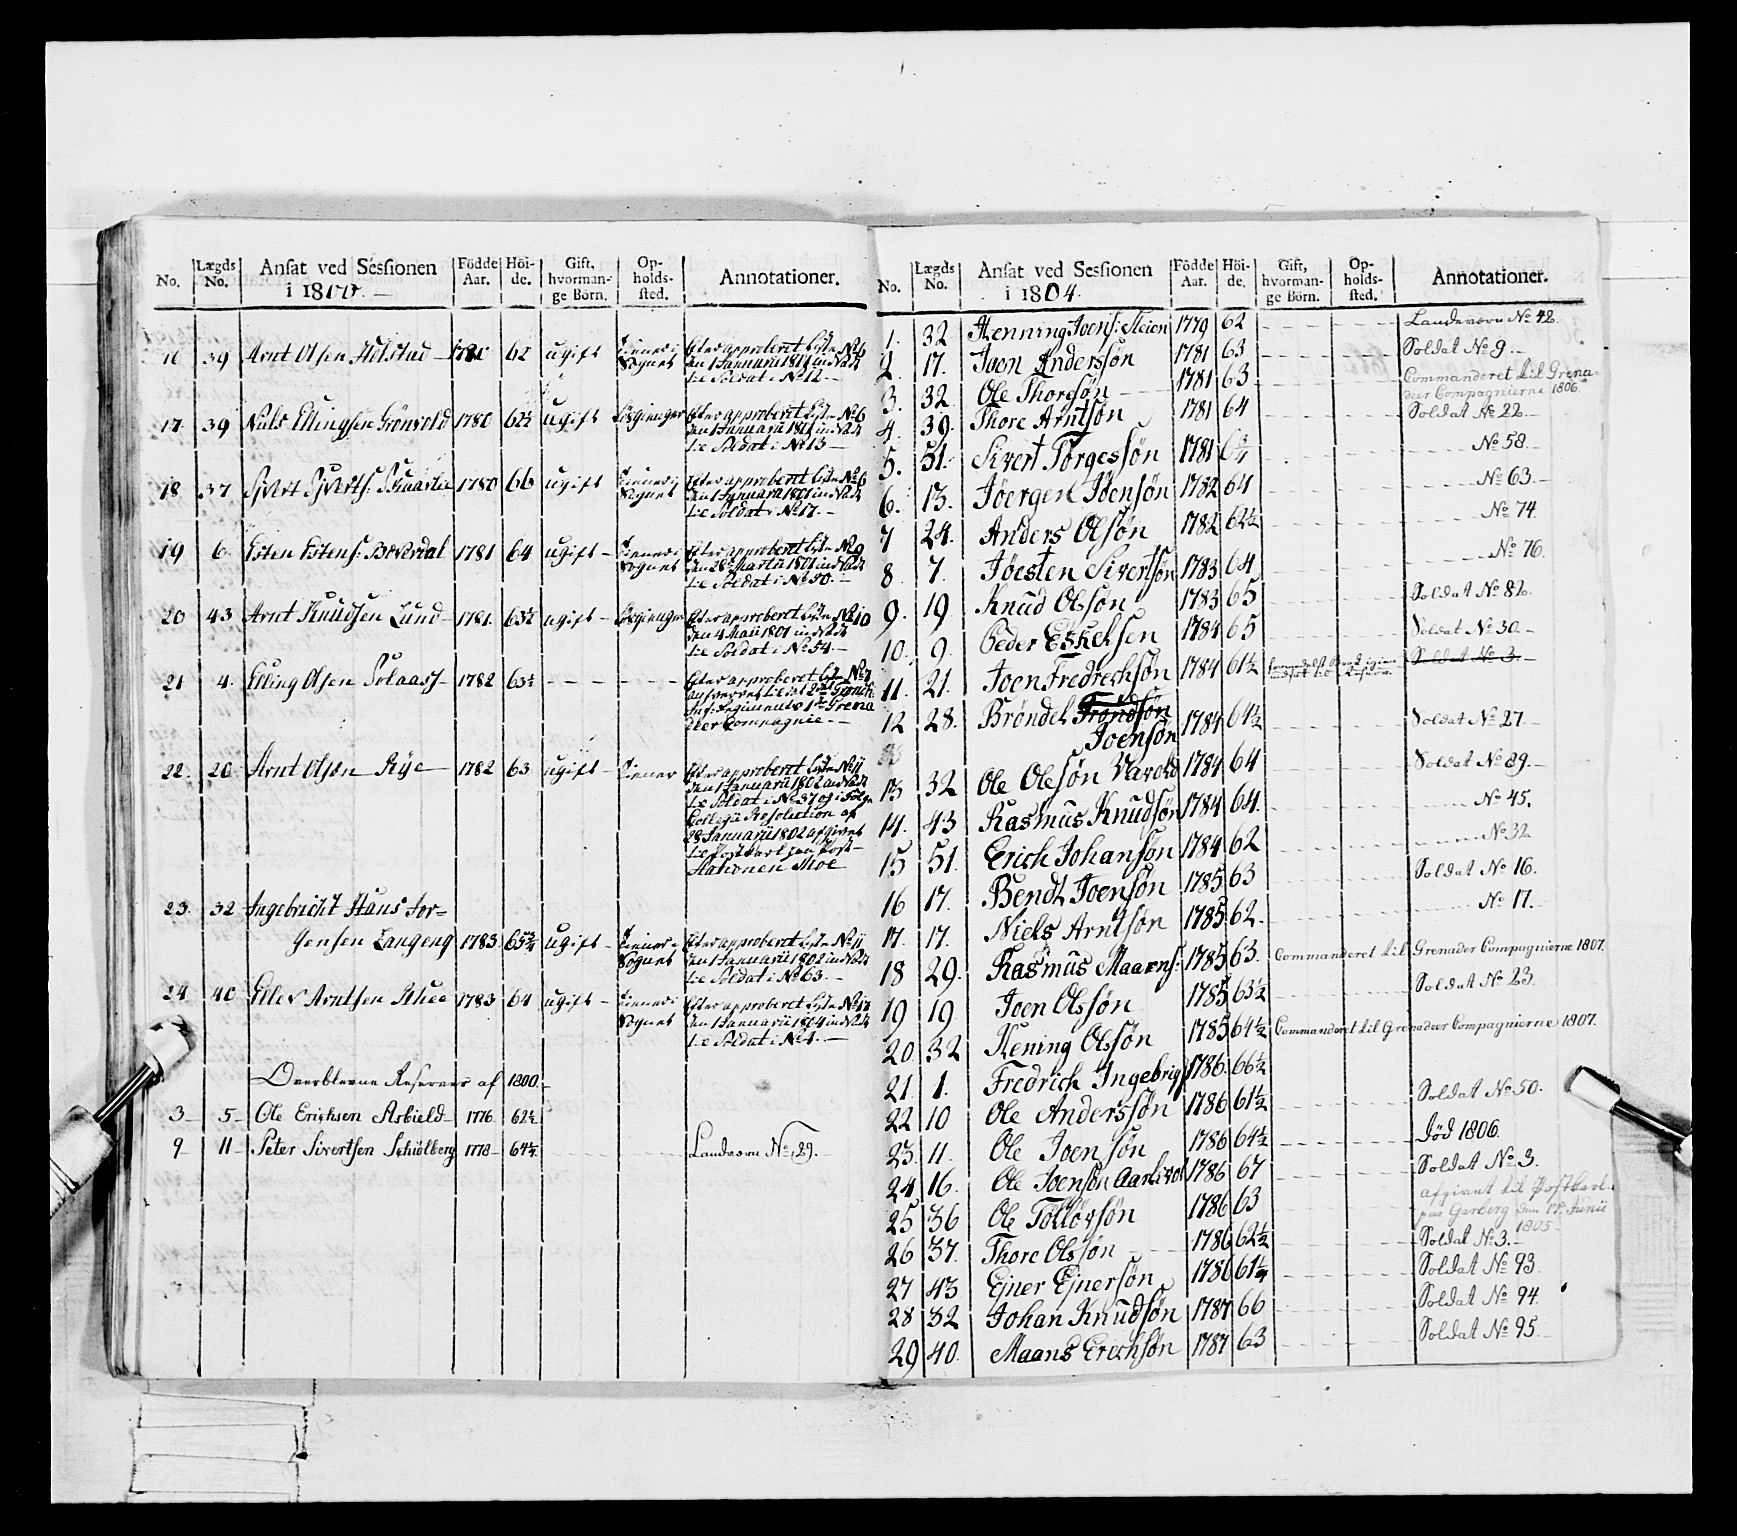 No. Lægds No. Ansat ved Sessionen i 1800. Födde Aar. Höi-de. Gift, hvorman-ge Börn. Op-holds-sted. Annotationer.
16 39 Arnt Olsen Holstad 62 ugift Tiener i Sognet Efter approberet Liste No 6
den 1 Januarii 1801 indsadt
til Soldat i No 12.
17. 39 Niels Ellingsen Grönvold 1780 62½ ugift Efter approberet Liste No 6
den 1 Januarii 1801 indsadt
til Soldat i No 13
18 37 Sivert Siverts: 1780 66 ugift Tiener i Sognet Efter approberet Liste No 6
den 1 Januarii 1801 indsadt
til Soldat i No 17.
19 6 Esten Estens: 1781 64 ugift Tiener i Sognet Efter approberet Liste No 9
den 28 Martii 1801 indsadt
til Soldat i No 50.
20 43 Arnt Knudsen Lund 1781. 63½ ugift Efter approberet Liste No 10
den 4 Maii 1801 indsadt
til Soldat i No 54.
21 4. Elling Olsen Solaas 1782 63½ Efter approberet Liste No 7
Inf: Regiments 1ste Grena
deer Compagnie
22. 20 Arnt Olsen Rÿe 1782 63 ugift Tiener Efter approberet Liste No 11
den 1 Januarii 1802 indsadt
til Soldat i No 37 og i Følge
Collegii Resolution af
28 Januarii 1802 afgivet
til Postkarl paa Post-
Stationen Moe
23. 32 Ingebricht Hans Jor=
gensen Langeng 1783. 65¾ ugift Tiener i Sognet Efter approberet Liste No 11
den 1 Januarii 1802 indsadt
til Soldat i No 63.
24 40 Arntsen 1783 64 ugift Tiener i Sognet Efter approberet Liste No 17
den 1 Januarii 1804 indsadt
til Soldat i No 4.
Overblevne Reserver af 1800
3 5 Ole Erichsen Asbield 1776 62½
9 11 Peter Sivertsen Schiölberg 1778 64½ Landværn No 29.
No. Lægds No. Ansat ved Sessionen i 1804. Födde Aar. Höi-de. Gift, hvorman-ge Börn. Op-holds-sted. Annotationer.
1. 32 Henning Joens: Steien 1779 62 Landeværn No 42
2. 17. Joen Anderssøn 1781 63 Soldat No 9.
3. 32 Ole Thorsøn 1781 63 Commanderet til Grena
deer Compagnierne 1806.
4. 39. Thore Arntsøn 1781 64 Soldat No 22
5. 51. Sivert Torgessøn 1781 No 58
6. 13. Jöergen Jöensøn 1782 64 No 63.
7 24. Anders Olsøn 1782 62½ No 74
8 7. Jöesten Sivertsøn 1783 64 No 76
9. 19 Knud Olsøn 1783 65 Soldat No 82
10. 9. Peder Eskelsen 1784 65 Soldat No 30.
11. 21. Joen Fredrechsøn 1784 61½ Soldat No 3.
12 28. Brøndel Trondsøn
Joensøn 1784 64½ Soldat No 27.
13 32 Ole Olesøn Varold 1784 64 Soldat No 89.
14. 43 Rasmus Knudsøn 1784 64. No 45.
15 51. Erich Johansøn 1784 62 No 32
16 17. Bendt Joensøn 1785 63 Soldat No 16.
17. 17. Niels Arntsøn 1785 62. No 17.
18 29. Rasmus Maarns: 1785 63. Commanderet til Grenader Compagnierne 1807.
19 19 Joen Olssøn 1785 63½ Soldat No 23.
20 32 Hening Olssøn 1785 64½ Commanderet til Grenadeer Compagnierne 1807.
21 1. Fredrich Ingebrigs: 1786 66½
22 10 Ole Anderssøn 1786 61½ Soldat No 50.
23. 11. Ole Joensøn 1786 64½ Død 1806.
24 16. Ole Joensøn 1786 67 Soldat No 3.
25 36 Ole Tølløvsøn 1786 63 afgivet til Postkarl
paa Garberg den 17. Junii
1805
26 37. Thore Olssøn 1786 62½ Soldat No 3.
27 43 Ejner Ejnersøn 1786 61¼ Soldat No 93
28 32 Johan Knudsøn 1787 66 Soldat No 94
29 40. Maans Erichsøn 1787 63 Soldat No 95